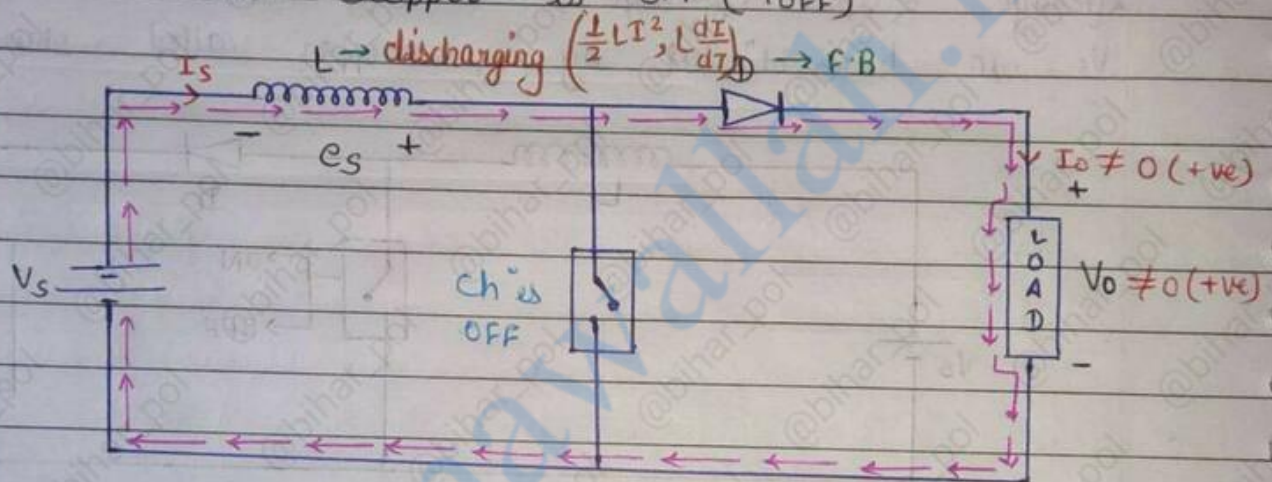 (TOFF)
L → discharging (1/2 LI², L dI/dI) D → F·B
Is
- es +
Io ≠ 0 (+ve)
+
Vs
Ch is
OFF
LOAD
Vo ≠ 0 (+ve)
-
@bihar_pol